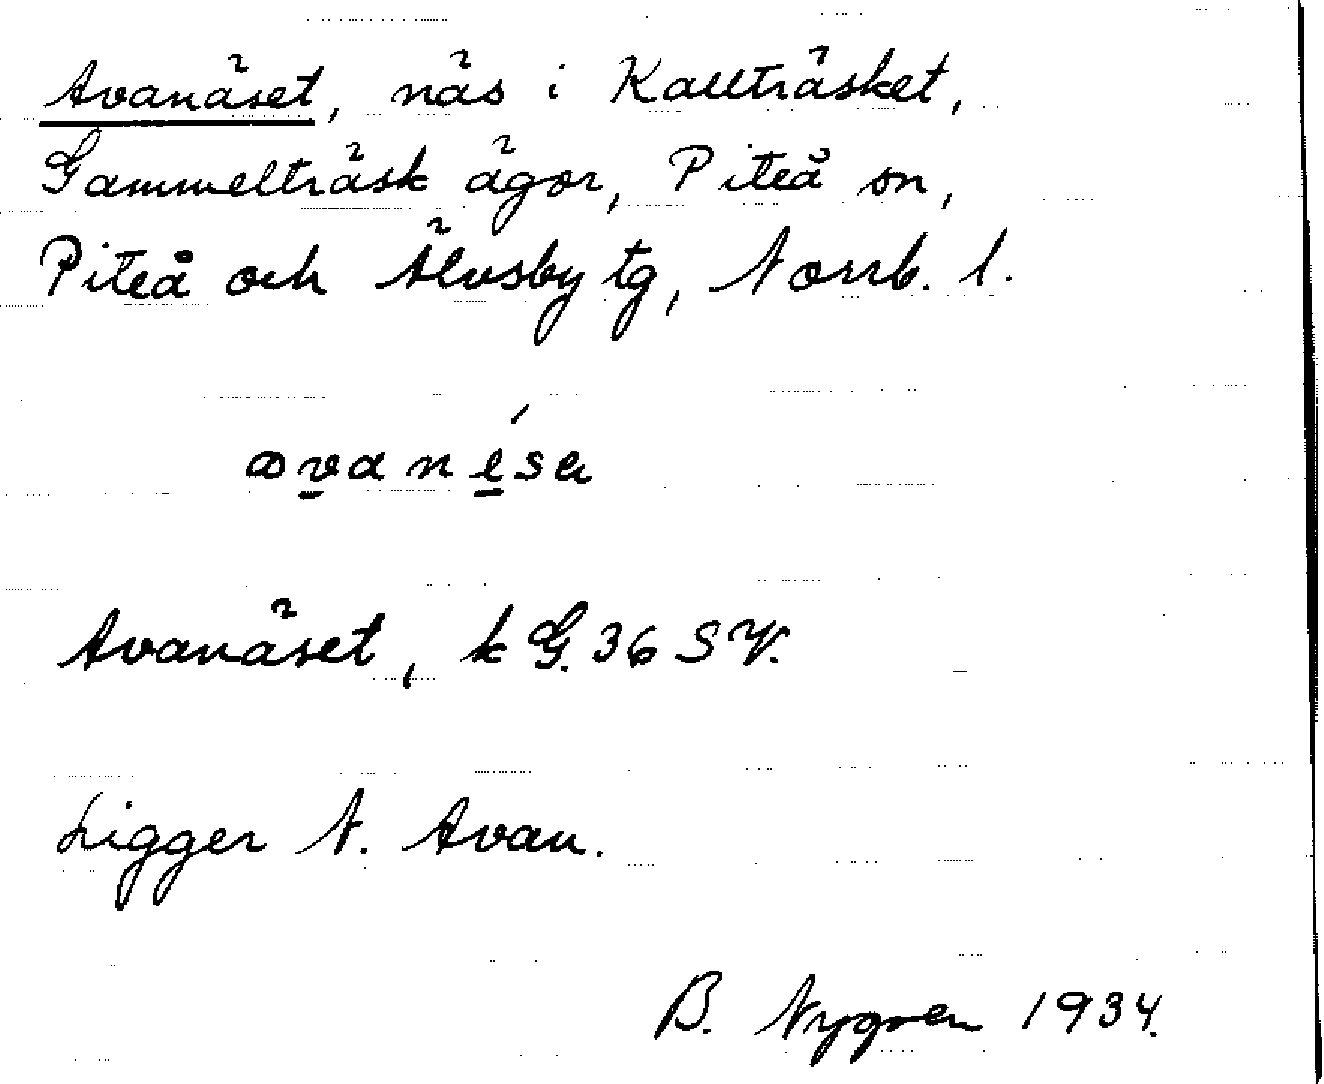 Avanäset, näs i Kallträsket,
Gammelträsk ägor, Piteå sn,
Piteå och Älvsby tg, Norrb. l.
Avanäset, k G. 36 SV.
Ligger N. Avan.
B. Nygren 1934.